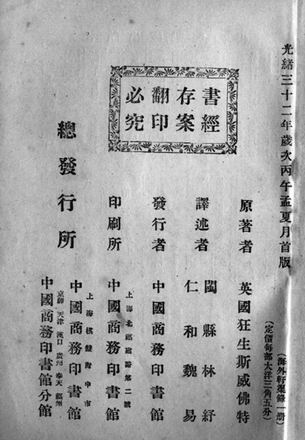 光緒三十二年歲次丙午孟夏月首版
（海外軒渠錄一冊）
（定價每部大洋三角五分）
書經
存案
翻印
必究
原著者 英國狂生斯威佛特
譯述者 閩縣林紓
仁和魏易
發行者 中國商務印書館
印刷所 上海北福建路第二號
中國商務印書館
總發行所 上海棋盤街中市
中國商務印書館
京師 天津 漢口 廣州 奉天 福州
中國商務印書館分館